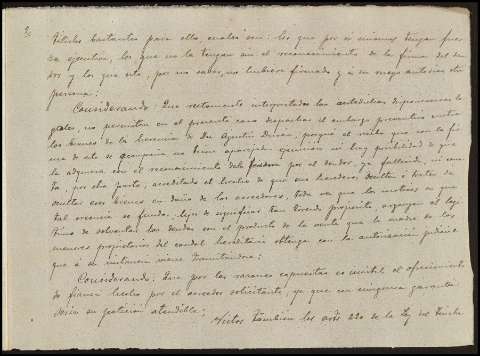 títulos bastantes para ello, cuales son: los que por si mismos tengan fuer
za ejecutiva, los que no la tengan sin el reconocimiento de la firma del deu
dor y los que este, por no saber, no hubiere firmado y a su ruego autorice otra
persona;
Considerando: Que rectamente interpretadas las antedichas disposiciones le
gales, no permiten en el presente caso despachar el embargo preventivo contra
los bienes de la herencia de Dn Agustín Durán, porque el vale que con la fir
ma de este se acompaña no tiene aparejada ejecución ni hay posibilidad de que
la adquiera con el reconocimiento de la por el deudor, ya fallecido, ni cons
ta, por otra parte, acreditado el de que sus herederos oculten o traten de
ocultar sus bienes en daño de los acreedores, toda vez que los motivos en que
tal creencia se funda, lejos de significar tan propósito arguyen el legí
timo de solventar las deudas con el producto de la venta que la madre de los
menores propietarios del caudal hereditario obtenga con la autorización judicial
que a su instancia viene tramitándose;
Considerando: Que por las razones expuestas es inútil el ofrecimiento
de fianza hecho por el acreedor solicitante, ya que con ninguna garantía
sería su petición atendible;
Vistos también los arts 220 de la Ley del Timbre